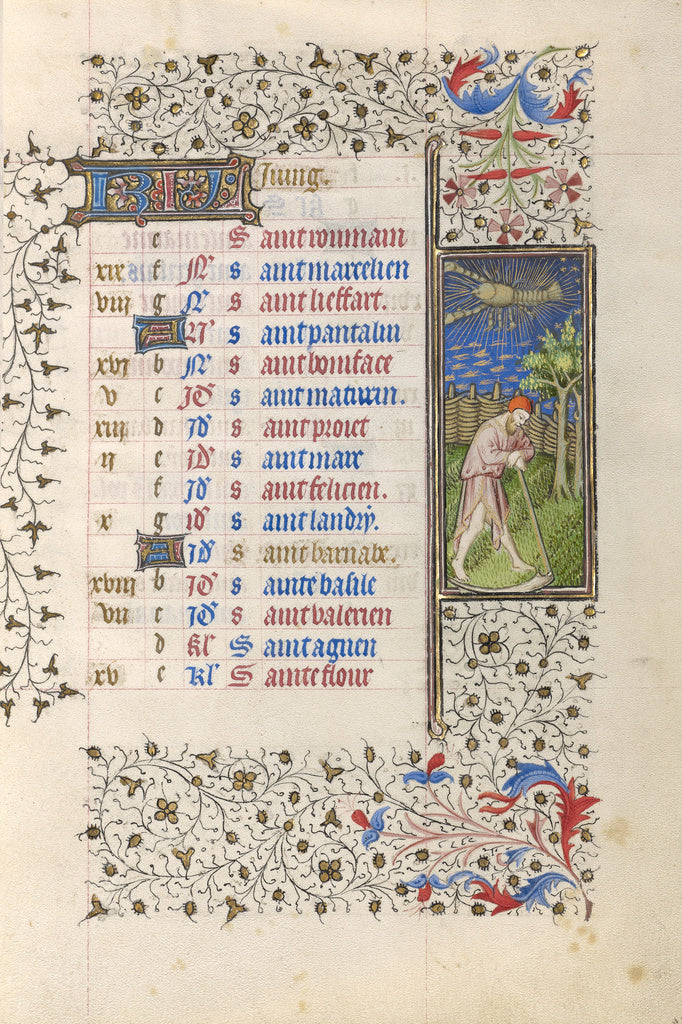 KL Juing.
e S aint roumain
xix f N s aint marcelien
viii g N s aint lieffart.
A N s aint pantalin
xvi b N s aint boniface
v c Id s aint maturin.
xiii d Id s aint proiet
ii e Id s aint marc
f Id s aint felicien.
x g id s aint landry.
A Id s aint barnabe.
xviii b Id s ainte basile
vii c Id s aint valerien
d kl S aint aguen
xv e kl S ainte flour